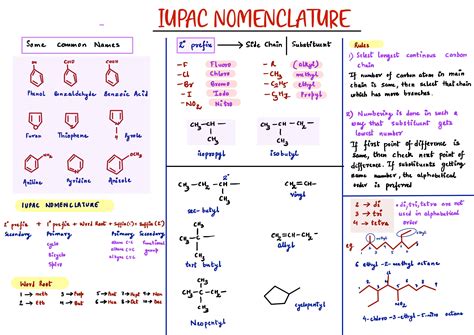 IUPAC NOMENCLATURE
Some Common Names
OH
CHO
COOH
Phenol Benzaldehyde Benzoic Acid
Furan Thiophene Pyrole
Aniline Pyridine Anisole
IUPAC NOMENCLATURE
2° prefix + 1° prefix + Word Root + Suffix(1) + Suffix(2)
Secondary Primary Primary Secondary
cyclo
Bicyclo
Spiro
alkane C-C
alkene C=C
alkyne C≡C
functional group
Word Root
1 → meth 3 → Prop 5 → Pent
2 → eth 4 → But 6 → Hex
2° prefix → Side Chain Substituent
-F Fluoro
-Cl Chloro
-Br Bromo
-I Iodo
-NO2 Nitro
-R (alkyl)
-CH3 methyl
-C2H5 ethyl
-C3H7 Propyl
CH3-CH-
CH3
isopropyl
CH3-CH-CH2-
CH3
isobutyl
CH3-CH2-CH-
CH3
sec-butyl
vinyl
allyl
tert butyl
Neopentyl
cyclopentyl
Rules
1) Select longest continous carbon
chain
If number of carbon atom in main
chain is same, then select that chain
which has more branches.
2) Numbering is done in such a
way that substituent gets
lowest number
If first point of difference is
same, then check next point of
difference. If substituents getting
same number, the alphabetical
order is preferred
2 → di
3 → tri
4 → tetra
di, tri, tetra are not
used in alphabetical
order
eg.
6 ethyl-2-methyl octane
4-chloro-3-ethyl-5-nitro octane